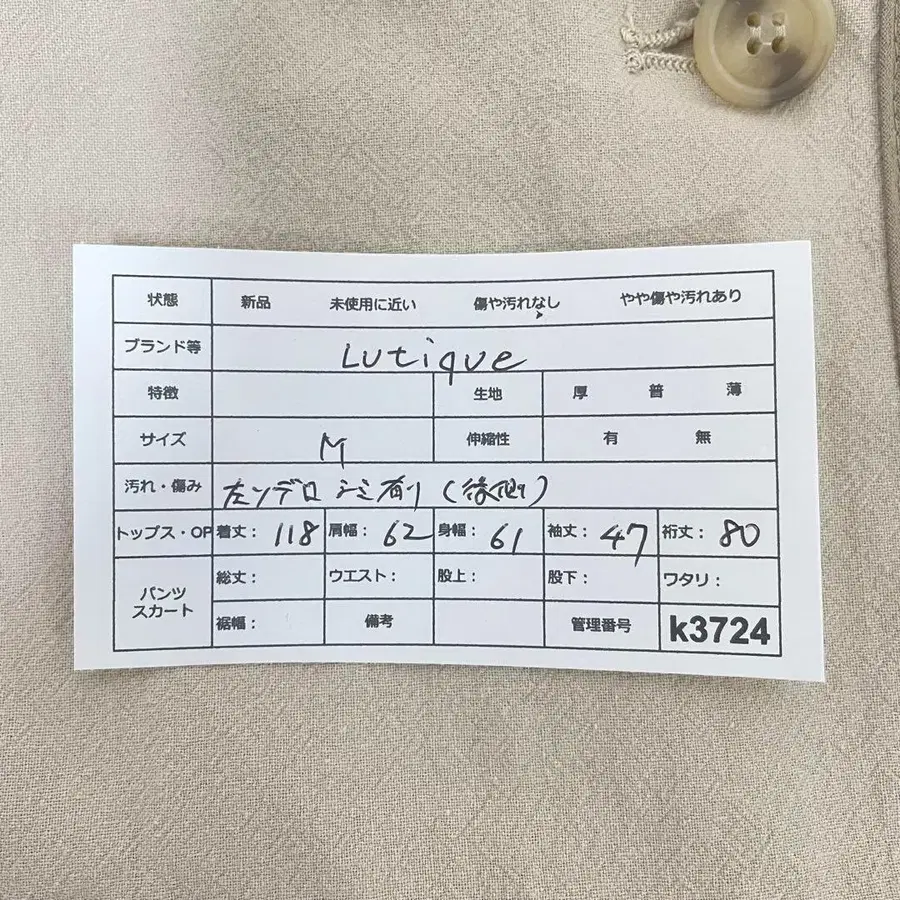 状態 新品 未使用に近い 傷や汚れなし やや傷や汚れあり
ブランド等 Lutique
特徴 生地 厚 普 薄
サイズ M 伸縮性 有 無
汚れ・傷み 左ソデロ シミ有り (後側)
トップス・OP 着丈: 118 肩幅: 62 身幅: 61 袖丈: 47 裄丈: 80
パンツ スカート 総丈: ウエスト: 股上: 股下: ワタリ:
裾幅: 備考 管理番号 k3724